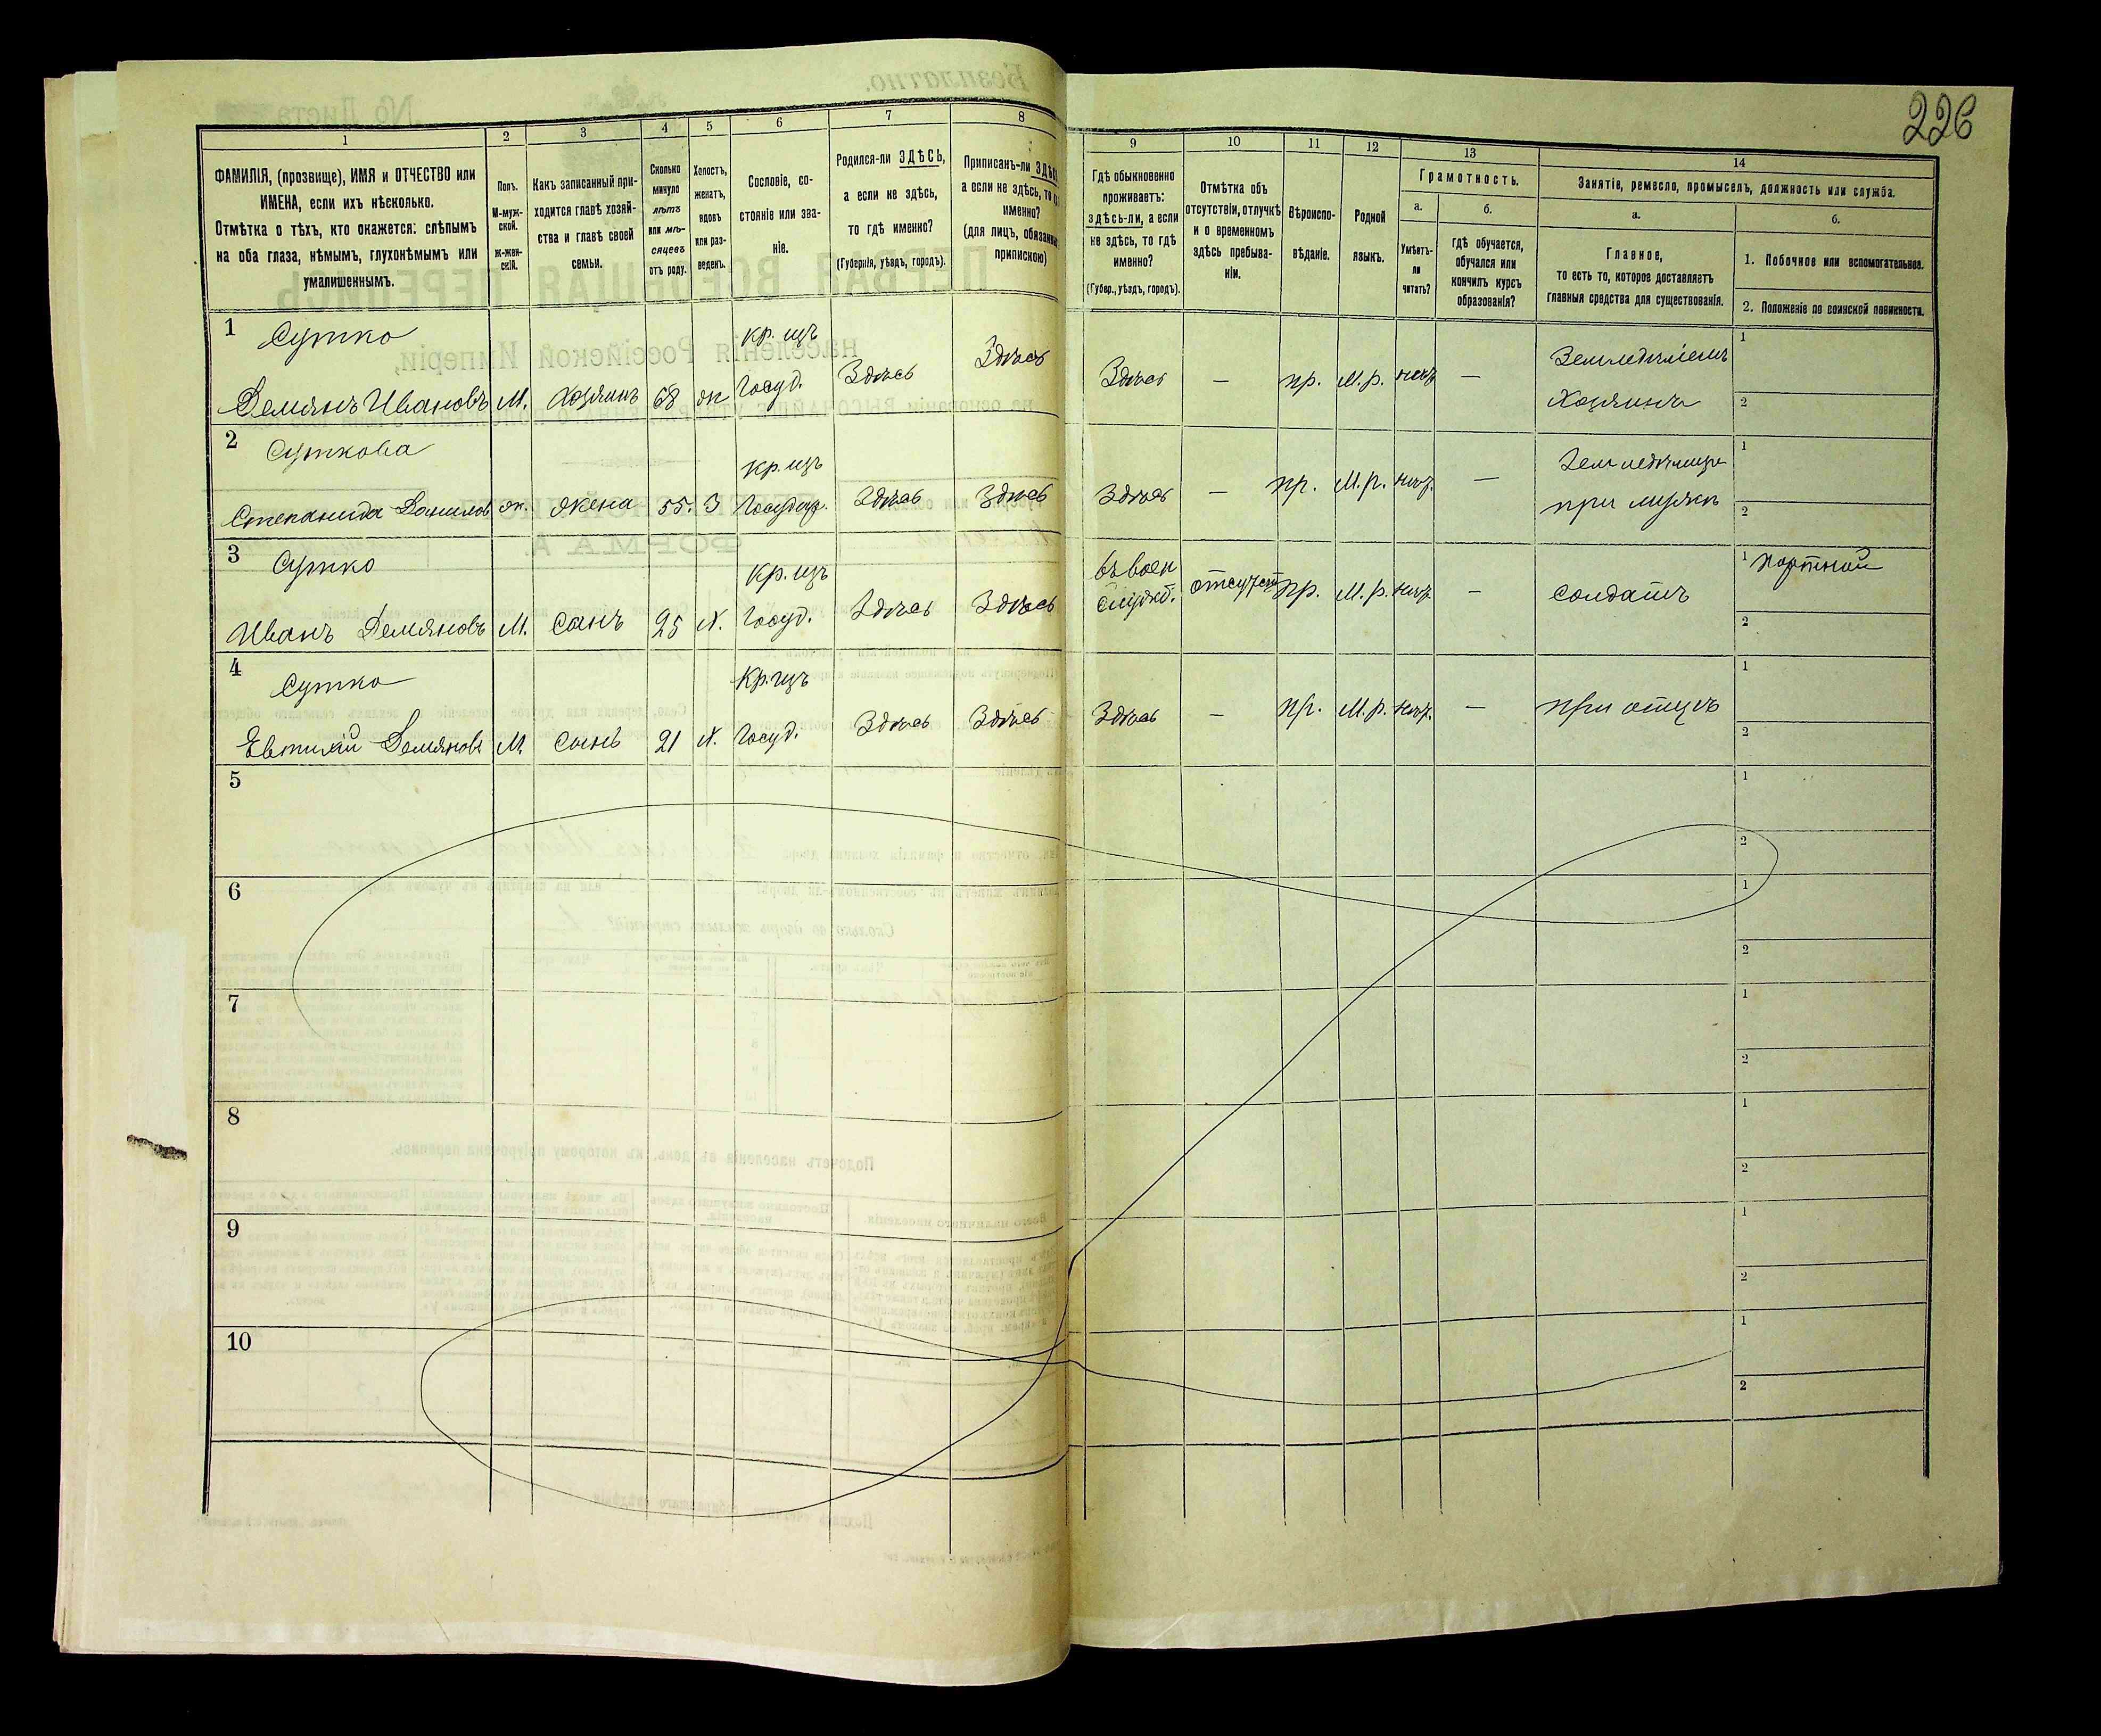 226
1
2
3
4
5
6
7
8
9
10
11
12
13
14
ФАМИЛІЯ, (прозвище), ИМЯ и ОТЧЕСТВО или
ИМЕНА, если ихъ нѣсколько.
Отмѣтка о тѣхъ, кто окажется: слѣпымъ
на оба глаза, нѣмымъ, глухонѣмымъ или
умалишеннымъ.
Полъ.
М-муж-
ской.
Ж-жен-
скій.
Какъ записанный при-
ходится главѣ хозяй-
ства и главѣ своей
семьи.
Сколько
минуло
лѣтъ
или мѣ-
сяцевъ
отъ роду.
Холостъ,
женатъ,
вдовъ
или раз-
веденъ.
Сословіе, со-
стояніе или зва-
ніе.
Родился-ли ЗДѢСЬ,
а если не здѣсь,
то гдѣ именно?
(Губернія, уѣздъ, городъ).
Приписанъ-ли ЗДѢСЬ
а если не здѣсь, то
именно?
(для лицъ, обязанныхъ
припискою)
Гдѣ обыкновенно
проживаетъ:
здѣсь-ли, а если
не здѣсь, то гдѣ
именно?
(Губер., уѣздъ, городъ).
Отмѣтка объ
отсутствіи, отлучкѣ
и о временномъ
здѣсь пребыва-
ніи.
Вѣроиспо-
вѣданіе.
Родной
языкъ.
Грамотность.
а.
Умѣетъ-
ли
читать?
б.
гдѣ обучается,
обучался или
кончилъ курсъ
образованія?
Занятіе, ремесло, промыселъ, должность или служба.
а.
Главное,
то есть то, которое доставляетъ
главныя средства для существованія.
б.
1. Побочное или вспомогательное.
2. Положеніе по воинской повинности.
1 Сутко кр. изъ Здѣсь Здѣсь Здѣсь — пр. М.р. нѣтъ — Земледѣліемъ 1
Демьянъ Ивановъ М. Хозяинъ 68 ж Госуд. Хозяинъ 2
2 Суткова кр. изъ Здѣсь Здѣсь Здѣсь — пр. М.р. — 1
Степанида Данилов ж. жена 55. З Государ. при мужѣ 2
3 Сутко кр. изъ Здѣсь Здѣсь въ воен отсутств пр. М.р. — солдатъ 1 Портной
Иванъ Демьяновъ М. Сынъ 25 х. Госуд. служб. 2
4 Сутко Кр. изъ Здѣсь Здѣсь Здѣсь — пр. М.р. — при отцѣ 1
Евтихій Демьяновъ М. Сынъ 21 х. Госуд. 2
5 1
2
6 1
2
7 1
2
8 1
2
9 1
2
10 1
2